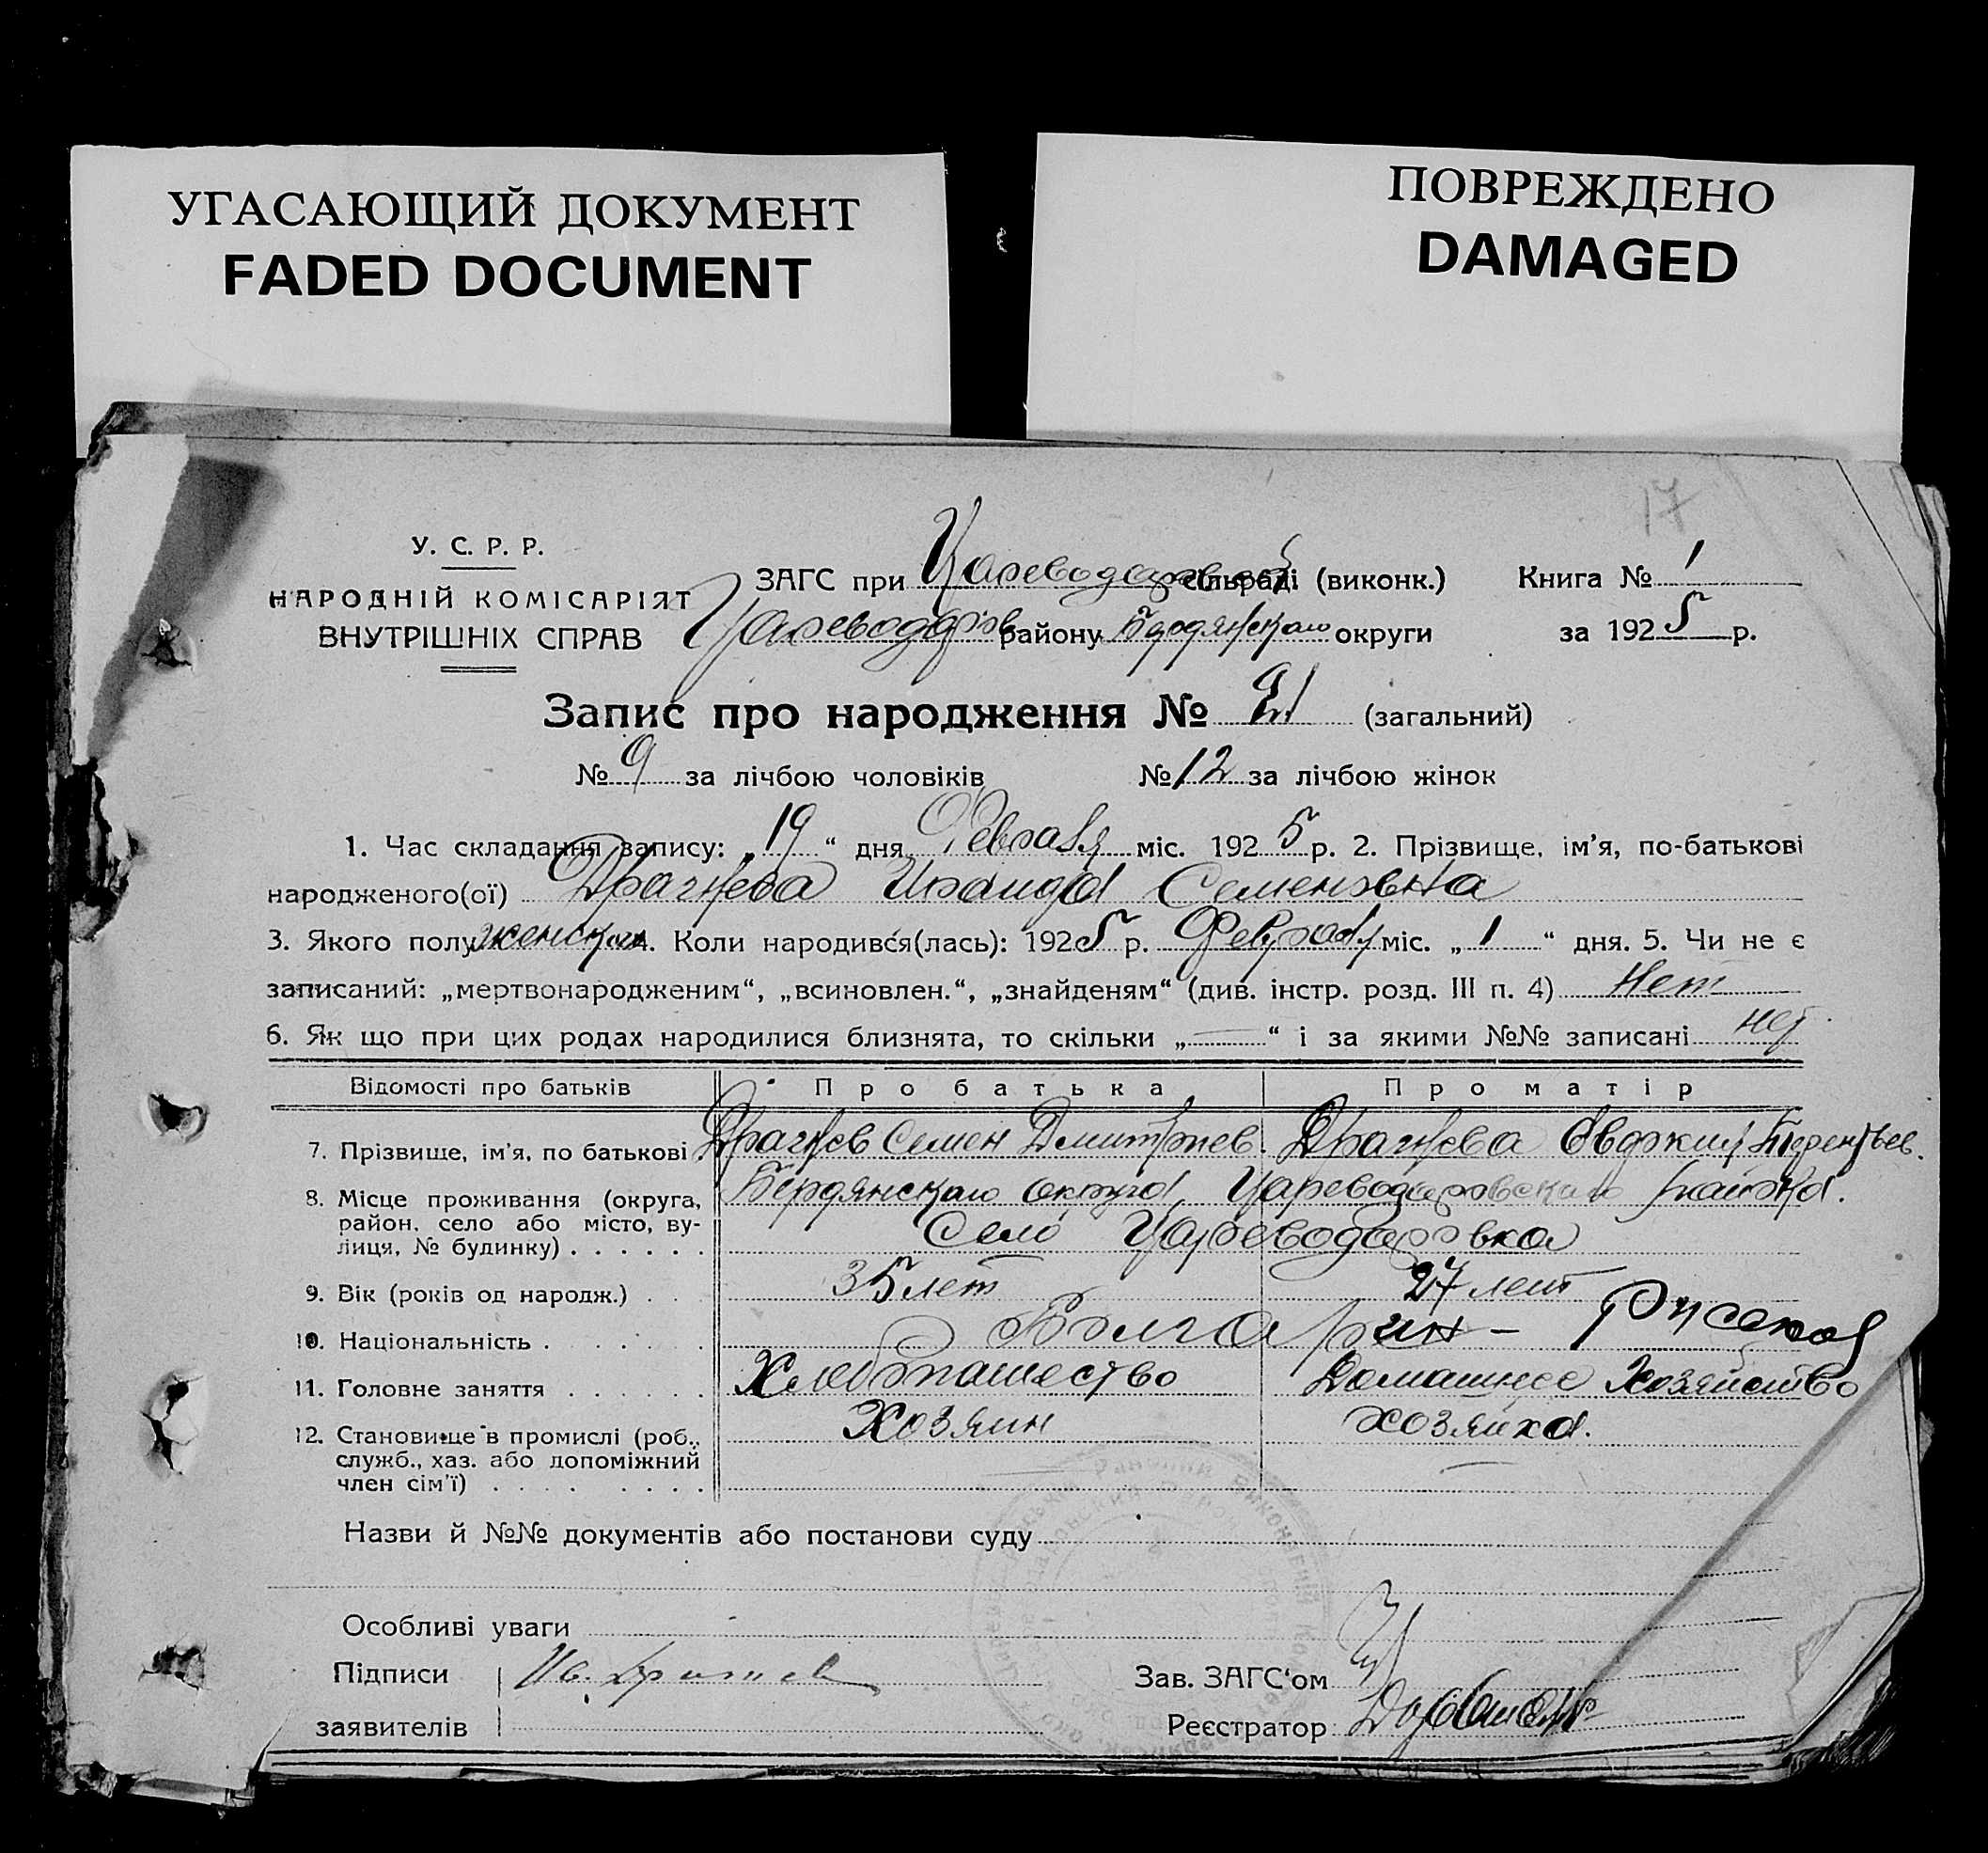 УГАСАЮЩИЙ ДОКУМЕНТ
FADED DOCUMENT
ПОВРЕЖДЕНО
DAMAGED
17
У. С. Р. Р.
НАРОДНІЙ КОМІСАРІЯТ
ВНУТРІШНІХ СПРАВ
ЗАГС при Цареводаров сільраді (виконк.) Книга № 1
Цареводаров району Бердянскаго округи за 1925 р.
Запис про народження № 21 (загальний)
№ 9 за лічбою чоловіків № 12 за лічбою жінок
1. Час складання запису: „19“ дня Февраля міс. 1925 р. 2. Прізвище, ім'я, по-батькові
народженого(ої) Драгнева Ираида Семеновна
3. Якого полу женскаго 4. Коли народився(лась): 1925 р. Февраля міс. „1“ дня. 5. Чи не є
записаний: „мертвонародженим“, „всиновлен.“, „знайденям“ (див. інстр. розд. III п. 4) Нет
6. Як що при цих родах народилися близнята, то скільки „—“ і за якими №№ записані нет
Відомості про батьків Про батька Про матір
7. Прізвище, ім'я, по батькові Драгнев Семен Дмитриев. Драгнева Евдокия Терентьев.
8. Місце проживання (округа, район, село або місто, вулиця, № будинку) . . . . . . Бердянскаго округа, Цареводаровскаго района.
Село Цареводаровка
9. Вік (років од народж.) . . . 35 лет 27 лет
10. Національність . . . . . . Болгарин – Русская
11. Головне заняття . . . . . . Хлебопашество Домашнее Хозяйство
12. Становище в промислі (роб., служб., хаз. або допоміжний член сім'ї) . . . . . . . . Хозяин хозяйка.
Назви й №№ документів або постанови суду
Особливі уваги
Підписи
заявителів
Зав. ЗАГС'ом
Реєстратор